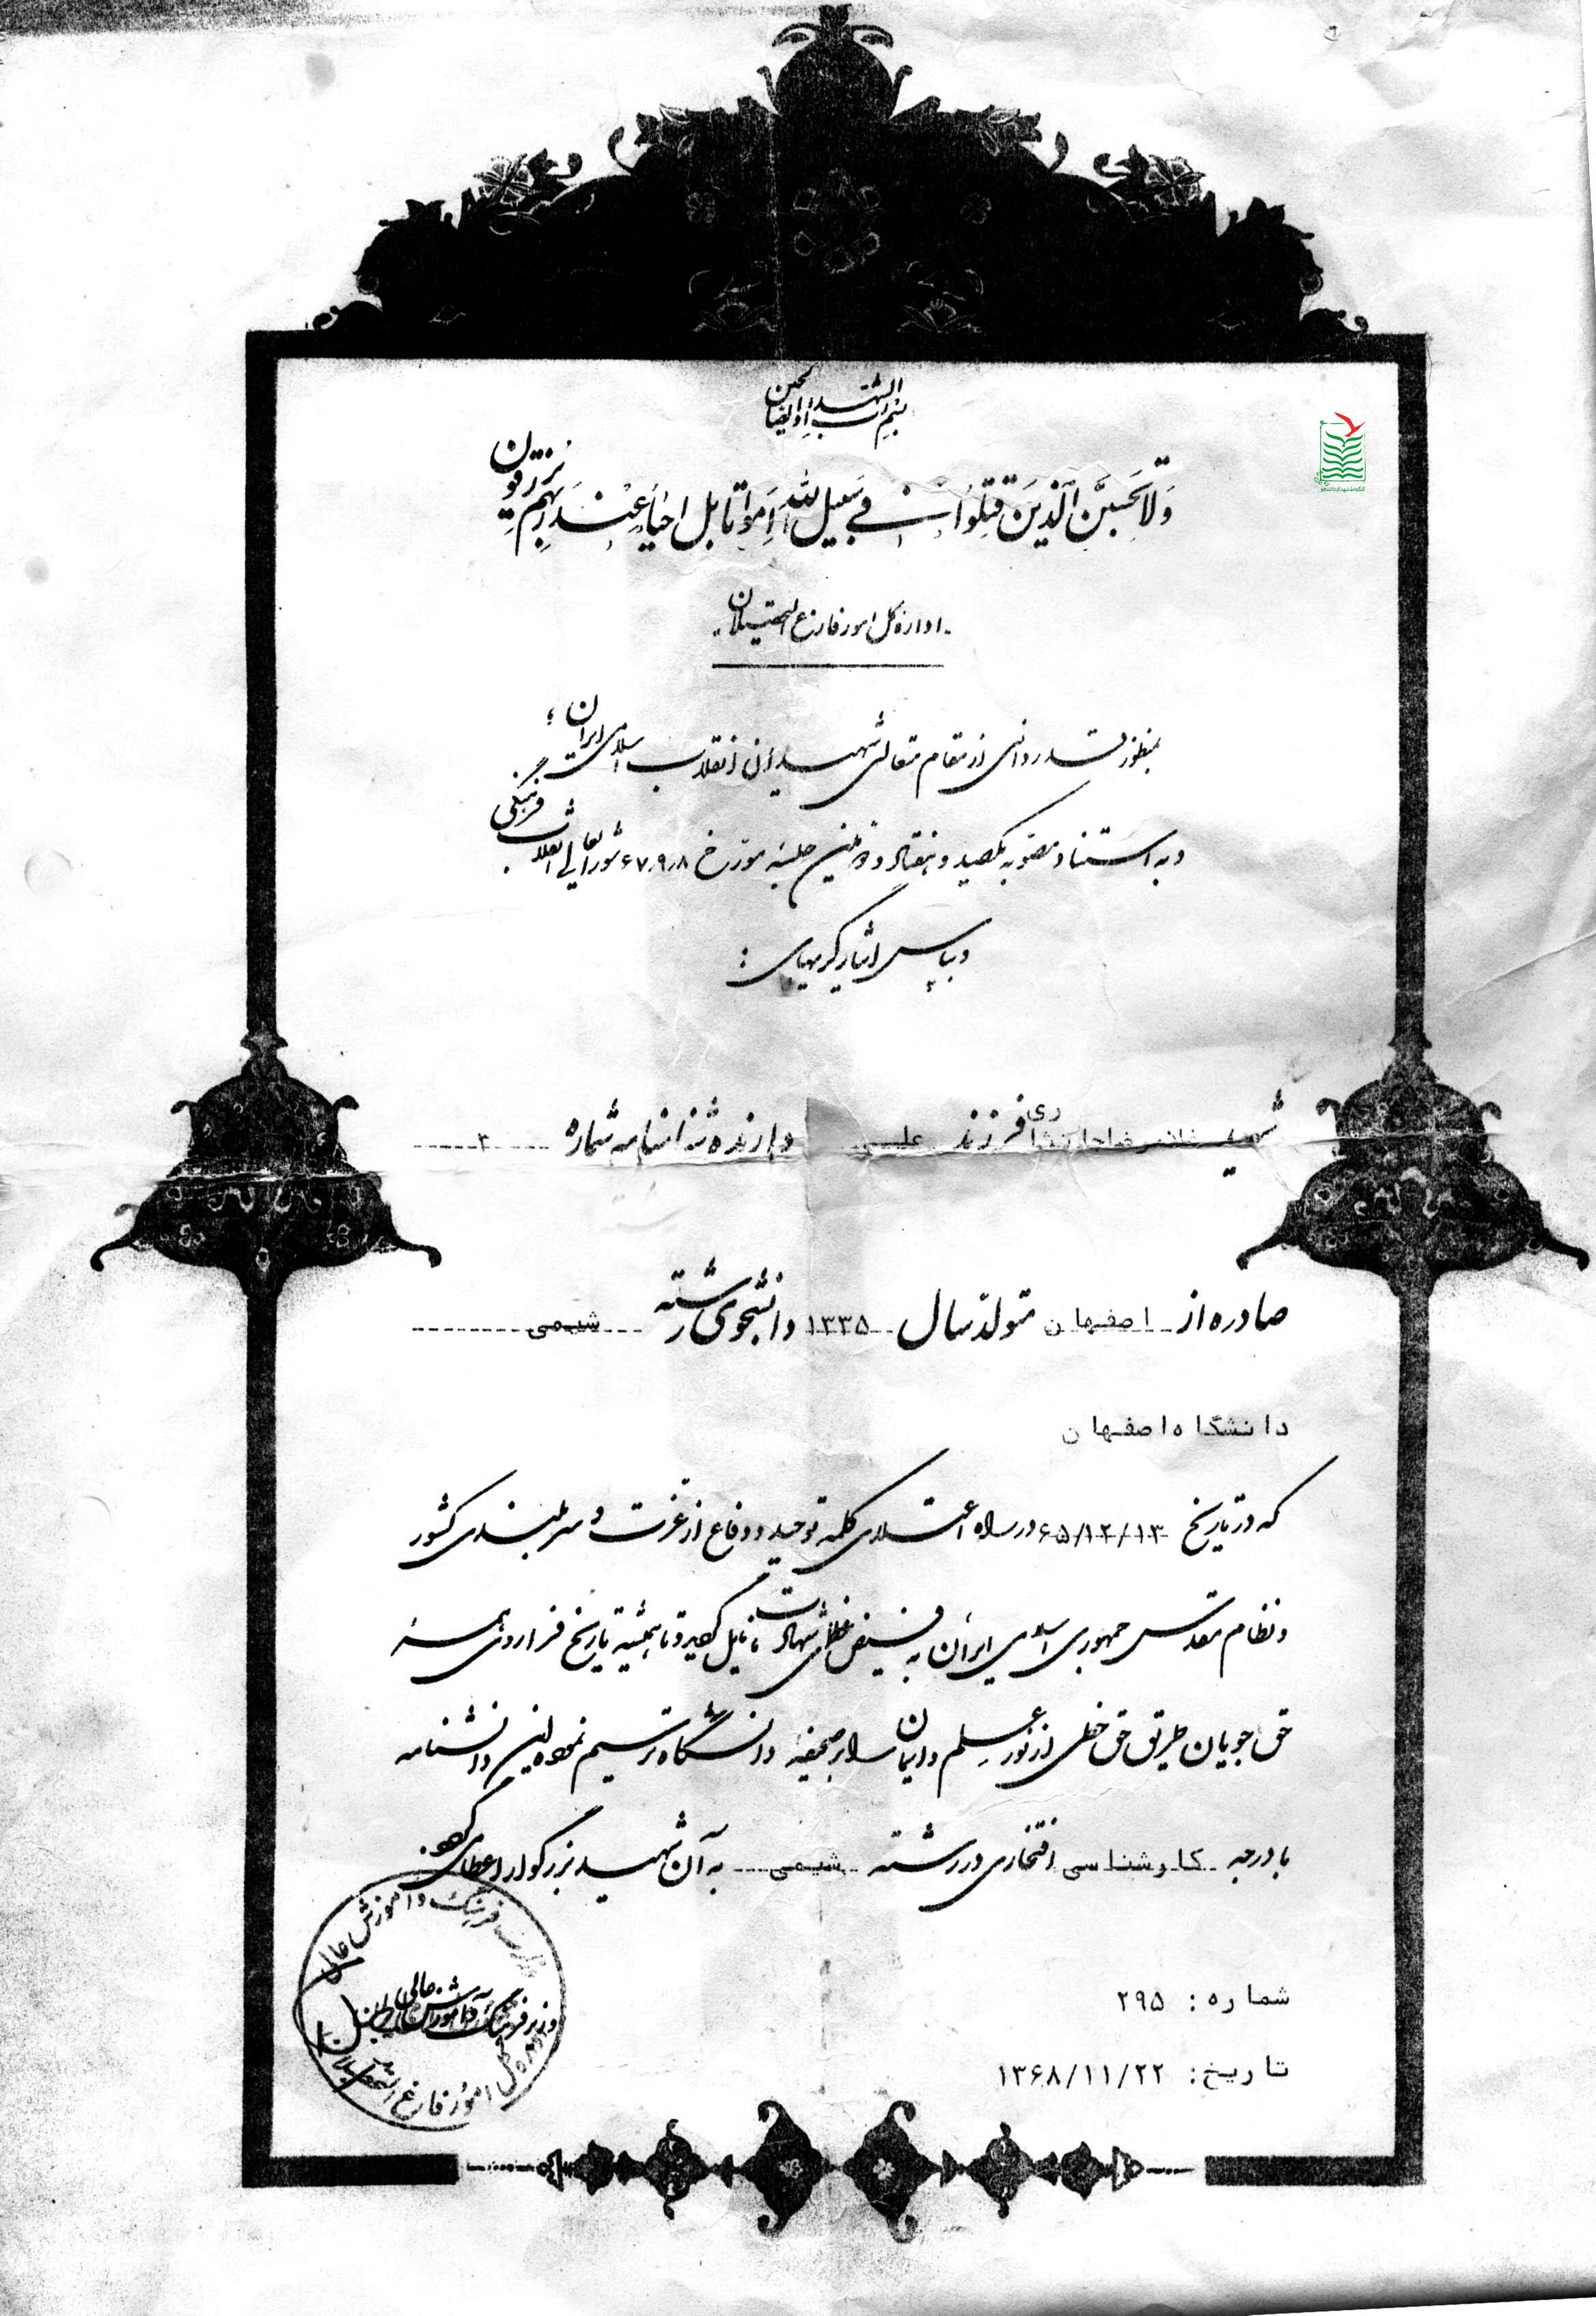 بسم رب الشهداء والصالحین
وَلا تَحْسَبَنَّ الَّذينَ قُتِلُوا في سَبيلِ اللهِ اَمْواتا بَل اَحْیاءٌ عِنْدَ رَبِّهِم یُرزَقون
اداره کل امور فارغ التحصیلان
بمنظور قدردانی از مقام متعالی شهیدان انقلاب اسلامی ایران ؛
و به استناد مصوبه یکصد و هفتاد و جلسه مورخ ۶۷٫۹٫۸ شورایعالی انقلاب فرهنگی
و بپاس ایثارگریهای :
شهید غلامرضا فرزند علی دارنده شناسنامه شماره ۲
صادره از اصفهان متولد سال ۱۳۳۵ دانشجوی رشته شیمی
دانشگاه اصفهان
که در تاریخ ۶۵/۱۲/۱۳ در راه اعتلای کلمه توحید و دفاع از عزت و سربلندی کشور
و نظام مقدس جمهوری اسلامی ایران به فیض عظمای شهادت نایل گردید و تا همیشه تاریخ فرا روی همه
حق جویان طریق حق خطی از نور علم و ایمان را بر صحیفه دانشگاه ترسیم نموده این دانشنامه
با درجه کارشناسی افتخاری در رشته شیمی به آن شهید بزرگوار اعطا می گردد.
شماره: ۲۹۵
تاریخ: ۱۳۶۸/۱۱/۲۲
وزارت فرهنگ و آموزش عالی
وزیر فرهنگ و آموزش عالی
اداره کل امور فارغ التحصیلان